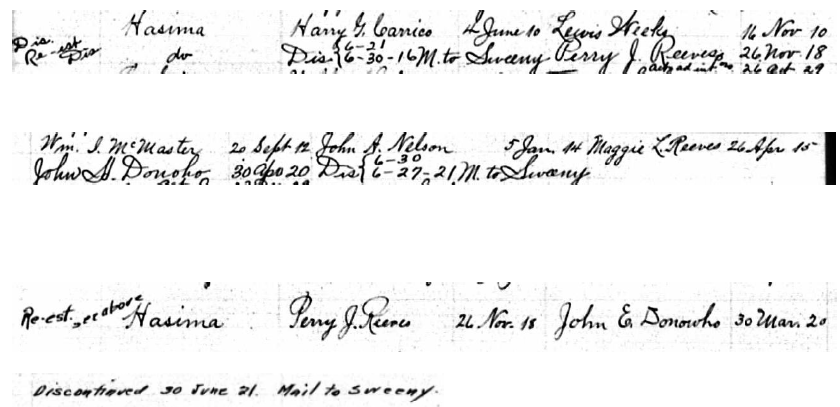 Hasima Harry G. Carrico 4 June 10 Lewis Weeks 16 Nov 10
Dis. Re-est Dis do Dis { 6-21 6-30-16 M. to Sweeny Perry J. Reeves 26 Nov 18
Wm. I. McMaster 20 Sept 12 John A. Nelson 5 Jan. 14 Maggie L. Reeves 26 Apr 15
John H. Donoho 30 Apr 20 Dis { 6-30 6-27-21 M. to Sweeny.
Re-est. see above Hasima Perry J. Reeves 26 Nov. 18 John E. Donowho 30 Mar. 20
Discontinued 30 June 21. Mail to Sweeny.